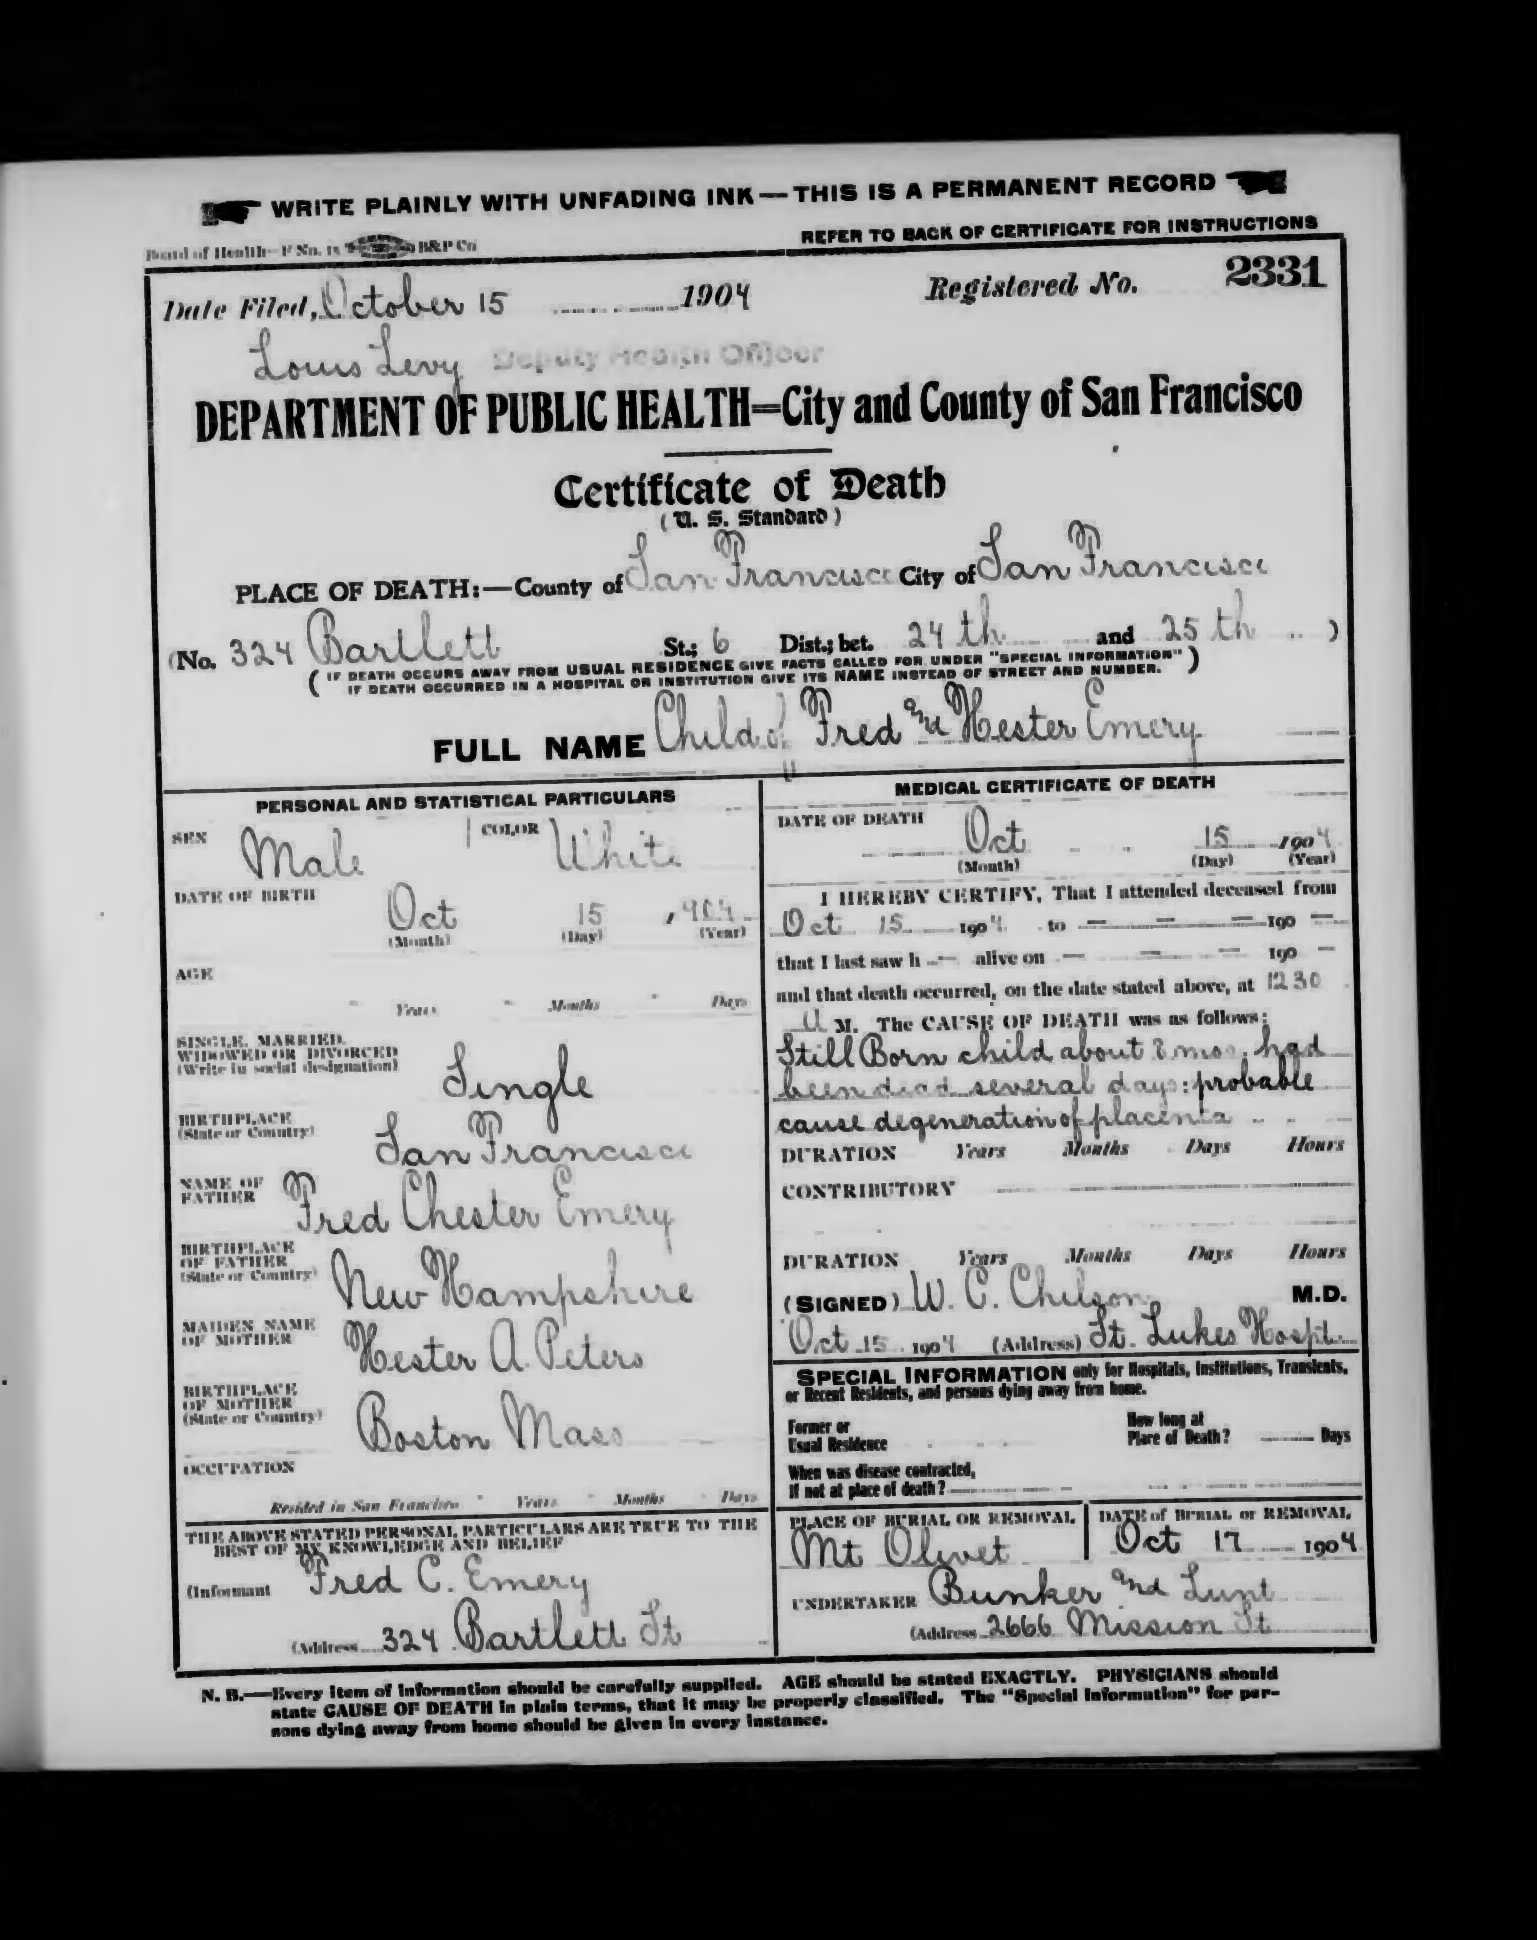 WRITE PLAINLY WITH UNFADING INK — THIS IS A PERMANENT RECORD
Board of Health—F No. B&P Co
REFER TO BACK OF CERTIFICATE FOR INSTRUCTIONS
Date Filed, October 15 1904 Registered No. 2331
Louis Levy Deputy Health Officer
DEPARTMENT OF PUBLIC HEALTH=City and County of San Francisco
Certificate of Death
(U. S. Standard)
PLACE OF DEATH:—County of San Francisco City of San Francisco
(No. 324 Bartlett St.; 6 Dist.; bet. 24th and 25th )
( IF DEATH OCCURS AWAY FROM USUAL RESIDENCE GIVE FACTS CALLED FOR UNDER "SPECIAL INFORMATION" )
IF DEATH OCCURRED IN A HOSPITAL OR INSTITUTION GIVE ITS NAME INSTEAD OF STREET AND NUMBER.
FULL NAME Child of Fred and Hester Emery
PERSONAL AND STATISTICAL PARTICULARS
SEX Male COLOR White
DATE OF BIRTH
Oct 15 , 904
(Month) (Day) (Year)
AGE
Years Months Days
SINGLE, MARRIED,
WIDOWED OR DIVORCED
(Write in social designation)
Single
BIRTHPLACE
(State or Country)
San Francisco
NAME OF
FATHER
Fred Chester Emery
BIRTHPLACE
OF FATHER
(State or Country)
New Hampshire
MAIDEN NAME
OF MOTHER
Hester A. Peters
BIRTHPLACE
OF MOTHER
(State or Country)
Boston Mass
OCCUPATION
Resided in San Francisco Years Months Days
THE ABOVE STATED PERSONAL PARTICULARS ARE TRUE TO THE
BEST OF MY KNOWLEDGE AND BELIEF
(Informant Fred C. Emery
(Address 324 Bartlett St
MEDICAL CERTIFICATE OF DEATH
DATE OF DEATH
Oct 15 1904
(Month) (Day) (Year)
I HEREBY CERTIFY, That I attended deceased from
Oct 15 1904 to — — — 190 —
that I last saw h — alive on — — — 190 —
and that death occurred, on the date stated above, at 12 30
M. The CAUSE OF DEATH was as follows:
Still Born child about 8 mos. had
been dead several days: probable
cause degeneration of placenta
DURATION Years Months Days Hours
CONTRIBUTORY
DURATION Years Months Days Hours
(SIGNED) W. C. Chilson M.D.
Oct 15 1904 (Address) St. Lukes Hospt.
SPECIAL INFORMATION only for Hospitals, Institutions, Transients,
or Recent Residents, and persons dying away from home.
Former or
Usual Residence
How long at
Place of Death? Days
When was disease contracted,
If not at place of death?
PLACE OF BURIAL OR REMOVAL
Mt Olivet
DATE of BURIAL or REMOVAL
Oct 17 1904
UNDERTAKER Bunker and Lunt
(Address 2666 Mission St
N. B.—Every item of information should be carefully supplied. AGE should be stated EXACTLY. PHYSICIANS should
state CAUSE OF DEATH in plain terms, that it may be properly classified. The "Special Information" for per-
sons dying away from home should be given in every instance.